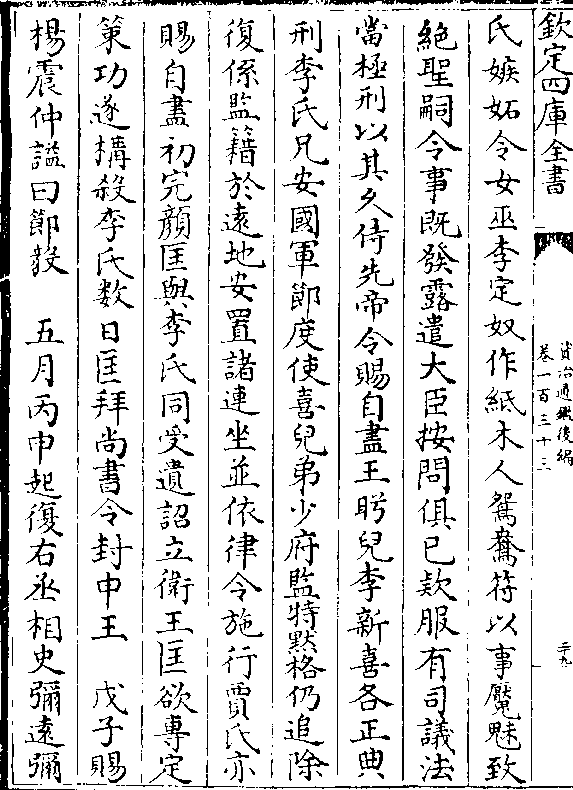 欽定四庫全書
資治通鑑後編
卷一百三十三
二十九
氏嫉妬令女巫李定奴作紙木人鴛鴦符以事魘魅致
絶聖嗣令事既發露遣大臣按問俱已欵服有司議法
當極刑以其久侍先帝令賜自盡王盻兒李新喜各正典
刑李氏兄安國軍節度使喜兒弟少府監特黙格仍追除
復係監籍於遠地安置諸連坐並依律令施行賈氏亦
賜自盡初完顔匡與李氏同受遺詔立衛王匡欲專定
策功遂構殺李氏數日匡拜尚書令封申王　戊子賜
楊震仲諡曰節毅　五月丙申起復右丞相史彌遠彌